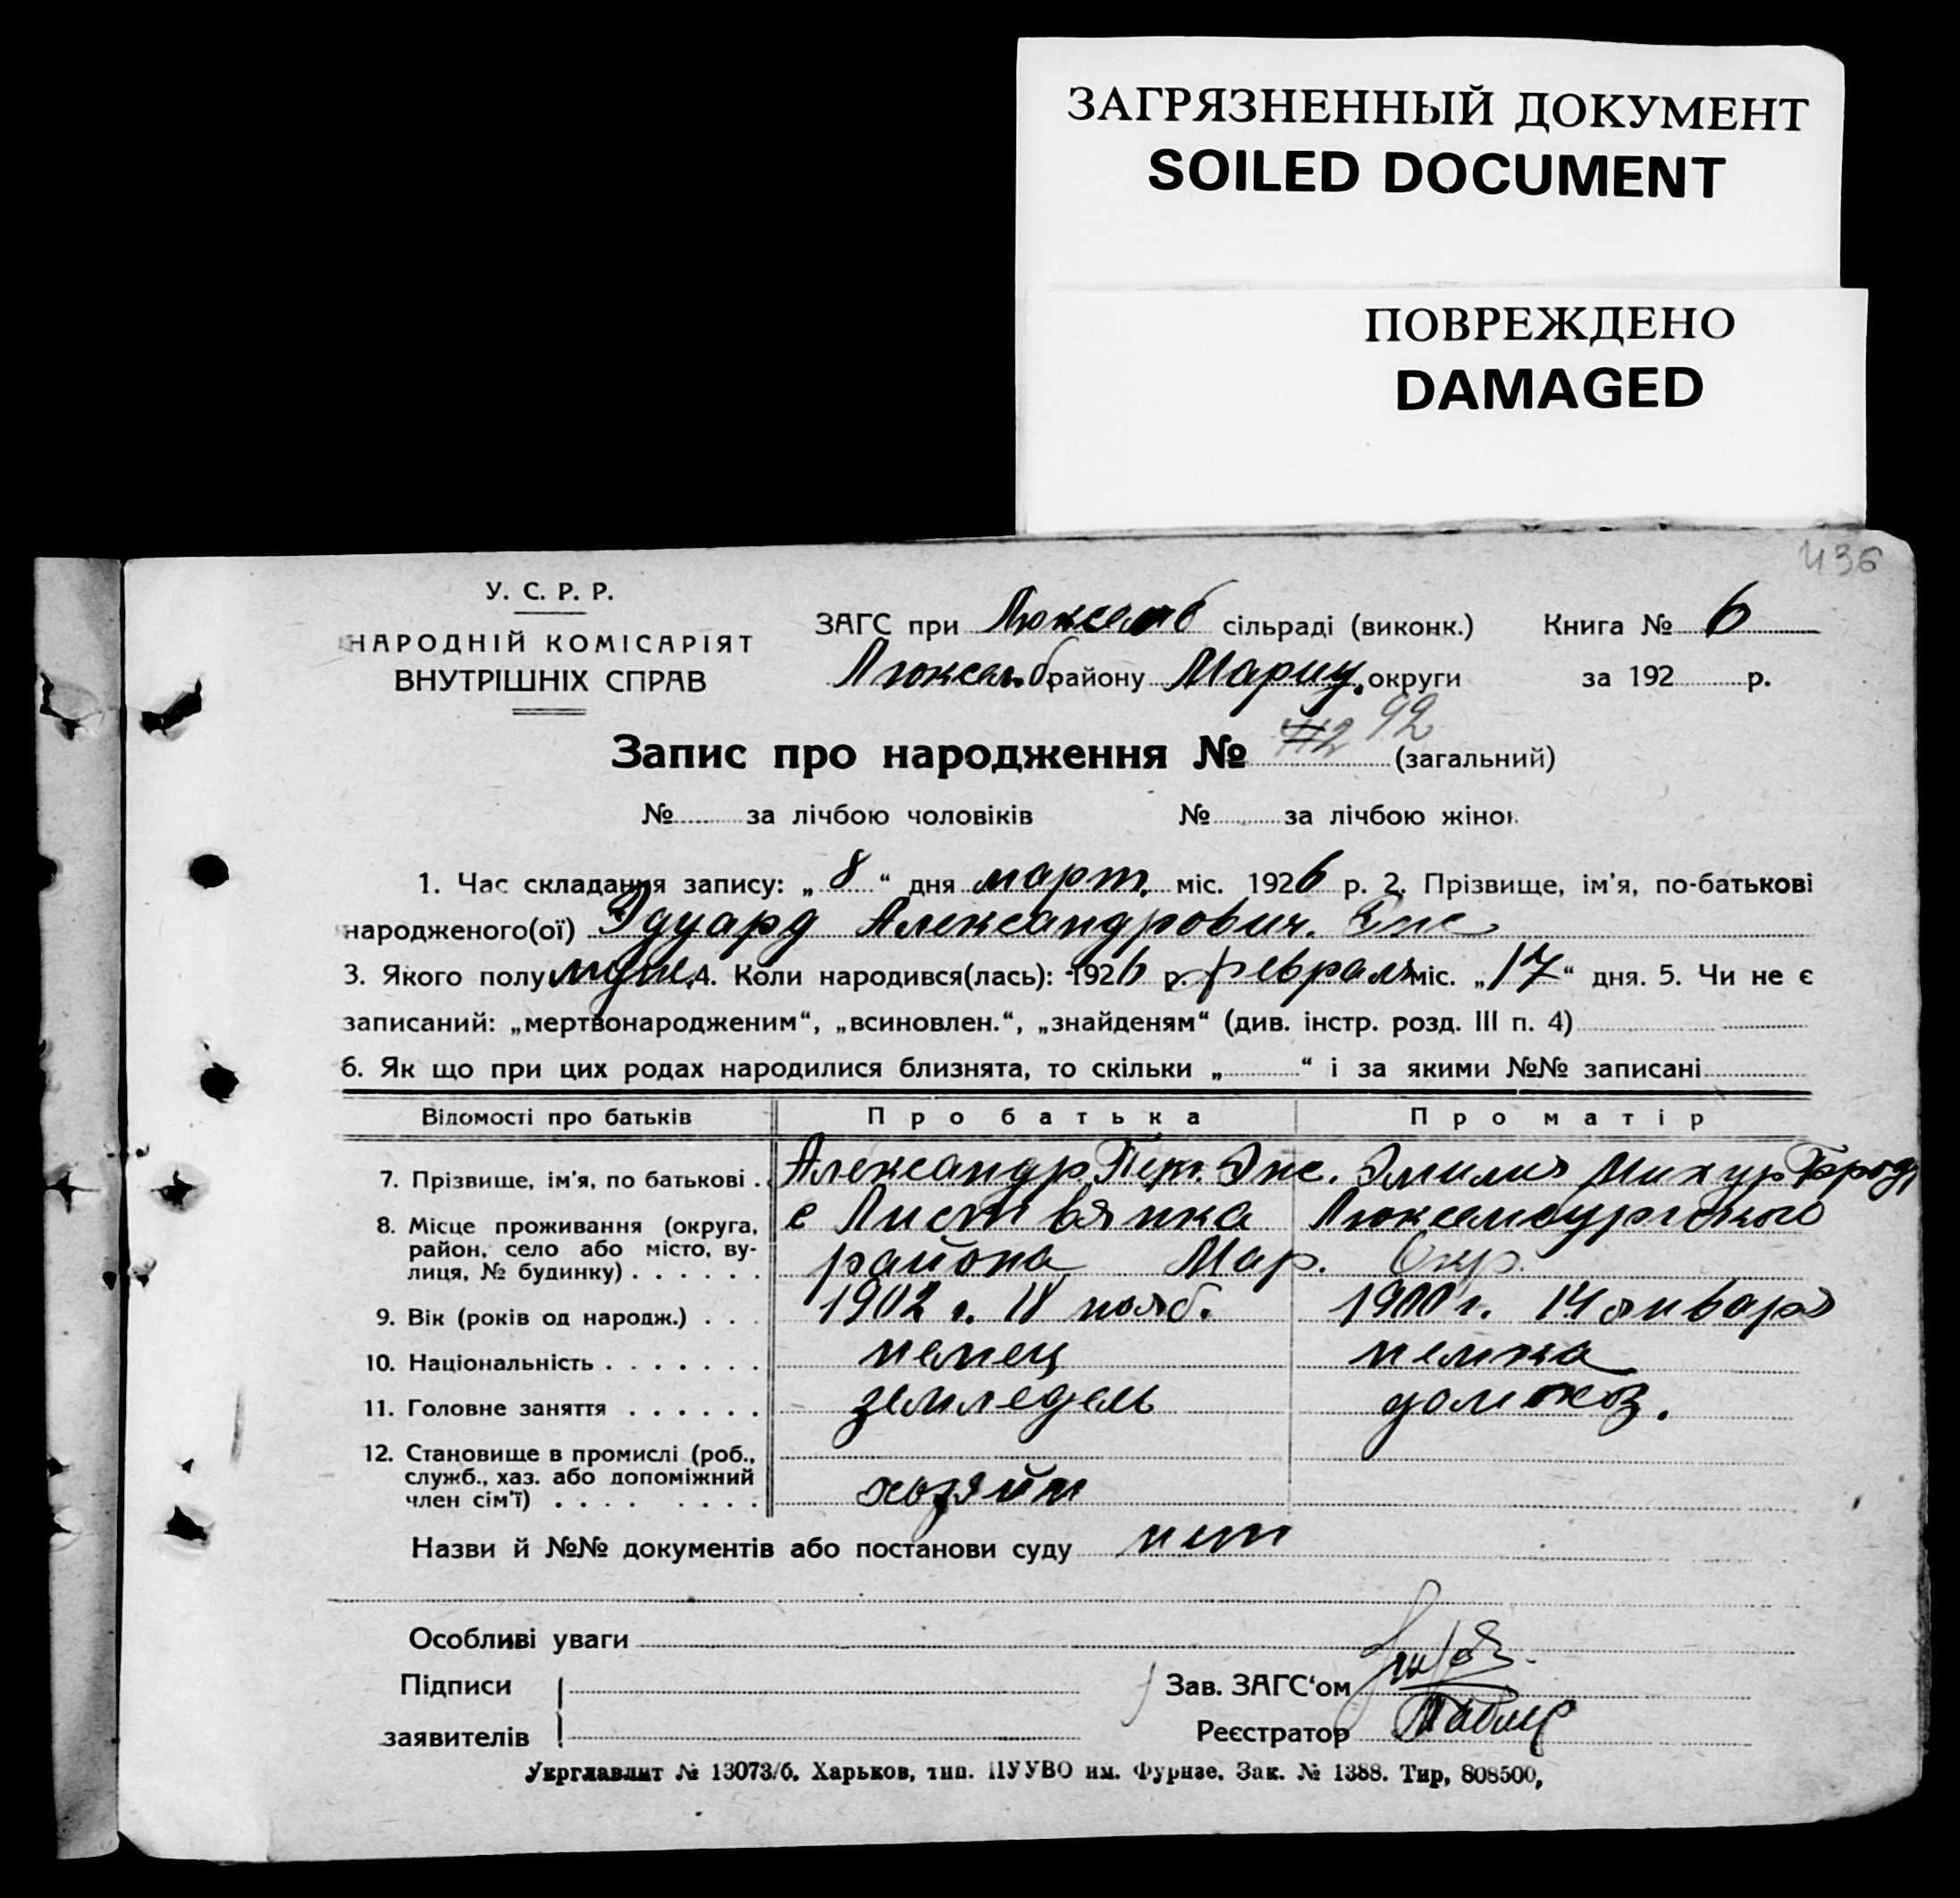 ЗАГРЯЗНЕННЫЙ ДОКУМЕНТ
SOILED DOCUMENT
ПОВРЕЖДЕНО
DAMAGED
436
У. С. Р. Р.
НАРОДНІЙ КОМІСАРІЯТ
ВНУТРІШНІХ СПРАВ
ЗАГС при Люксемб сільраді (виконк.) Книга № 6
Люксемб. району Мариу. округи за 192 р.
Запис про народження № 92 (загальний)
№ за лічбою чоловіків № за лічбою жінок
1. Час складання запису: „ 8 “ дня март. міс. 1926 р. 2. Прізвище, ім'я, по-батькові
народженого(ої) Эдуард Александрович. Энс
3. Якого полу муж. 4. Коли народився(лась): 1926 р. февраля міс. „ 17 “ дня. 5. Чи не є
записаний: „мертвонародженим“, „всиновлен.“, „знайденям“ (див. інстр. розд. III п. 4)
6. Як що при цих родах народилися близнята, то скільки „ “ і за якими №№ записані
Відомості про батьків Про батька Про матір
7. Прізвище, ім'я, по батькові . Александр Пет. Энс. Эмилия
8. Місце проживання (округа, район, село або місто, вулиця, № будинку) . . . . . . с Листвянка Люксембургского
района Мар. Окр.
9. Вік (років од народж.) . . . 1902 г. 18 нояб. 1900 г. 14 января
10. Національність . . . . . . . немец немка
11. Головне заняття . . . . . . земледель домохоз.
12. Становище в промислі (роб., служб., хаз. або допоміжний член сім'ї) . . . . . . . . хозяйн
Назви й №№ документів або постанови суду нет
Особливі уваги
Підписи
заявителів
Зав. ЗАГС‘ом
Реєстратор
Укрглавлит № 13073/б. Харьков, тип. ПУУВО им. Фрунзе. Зак. № 1388. Тир, 808500,